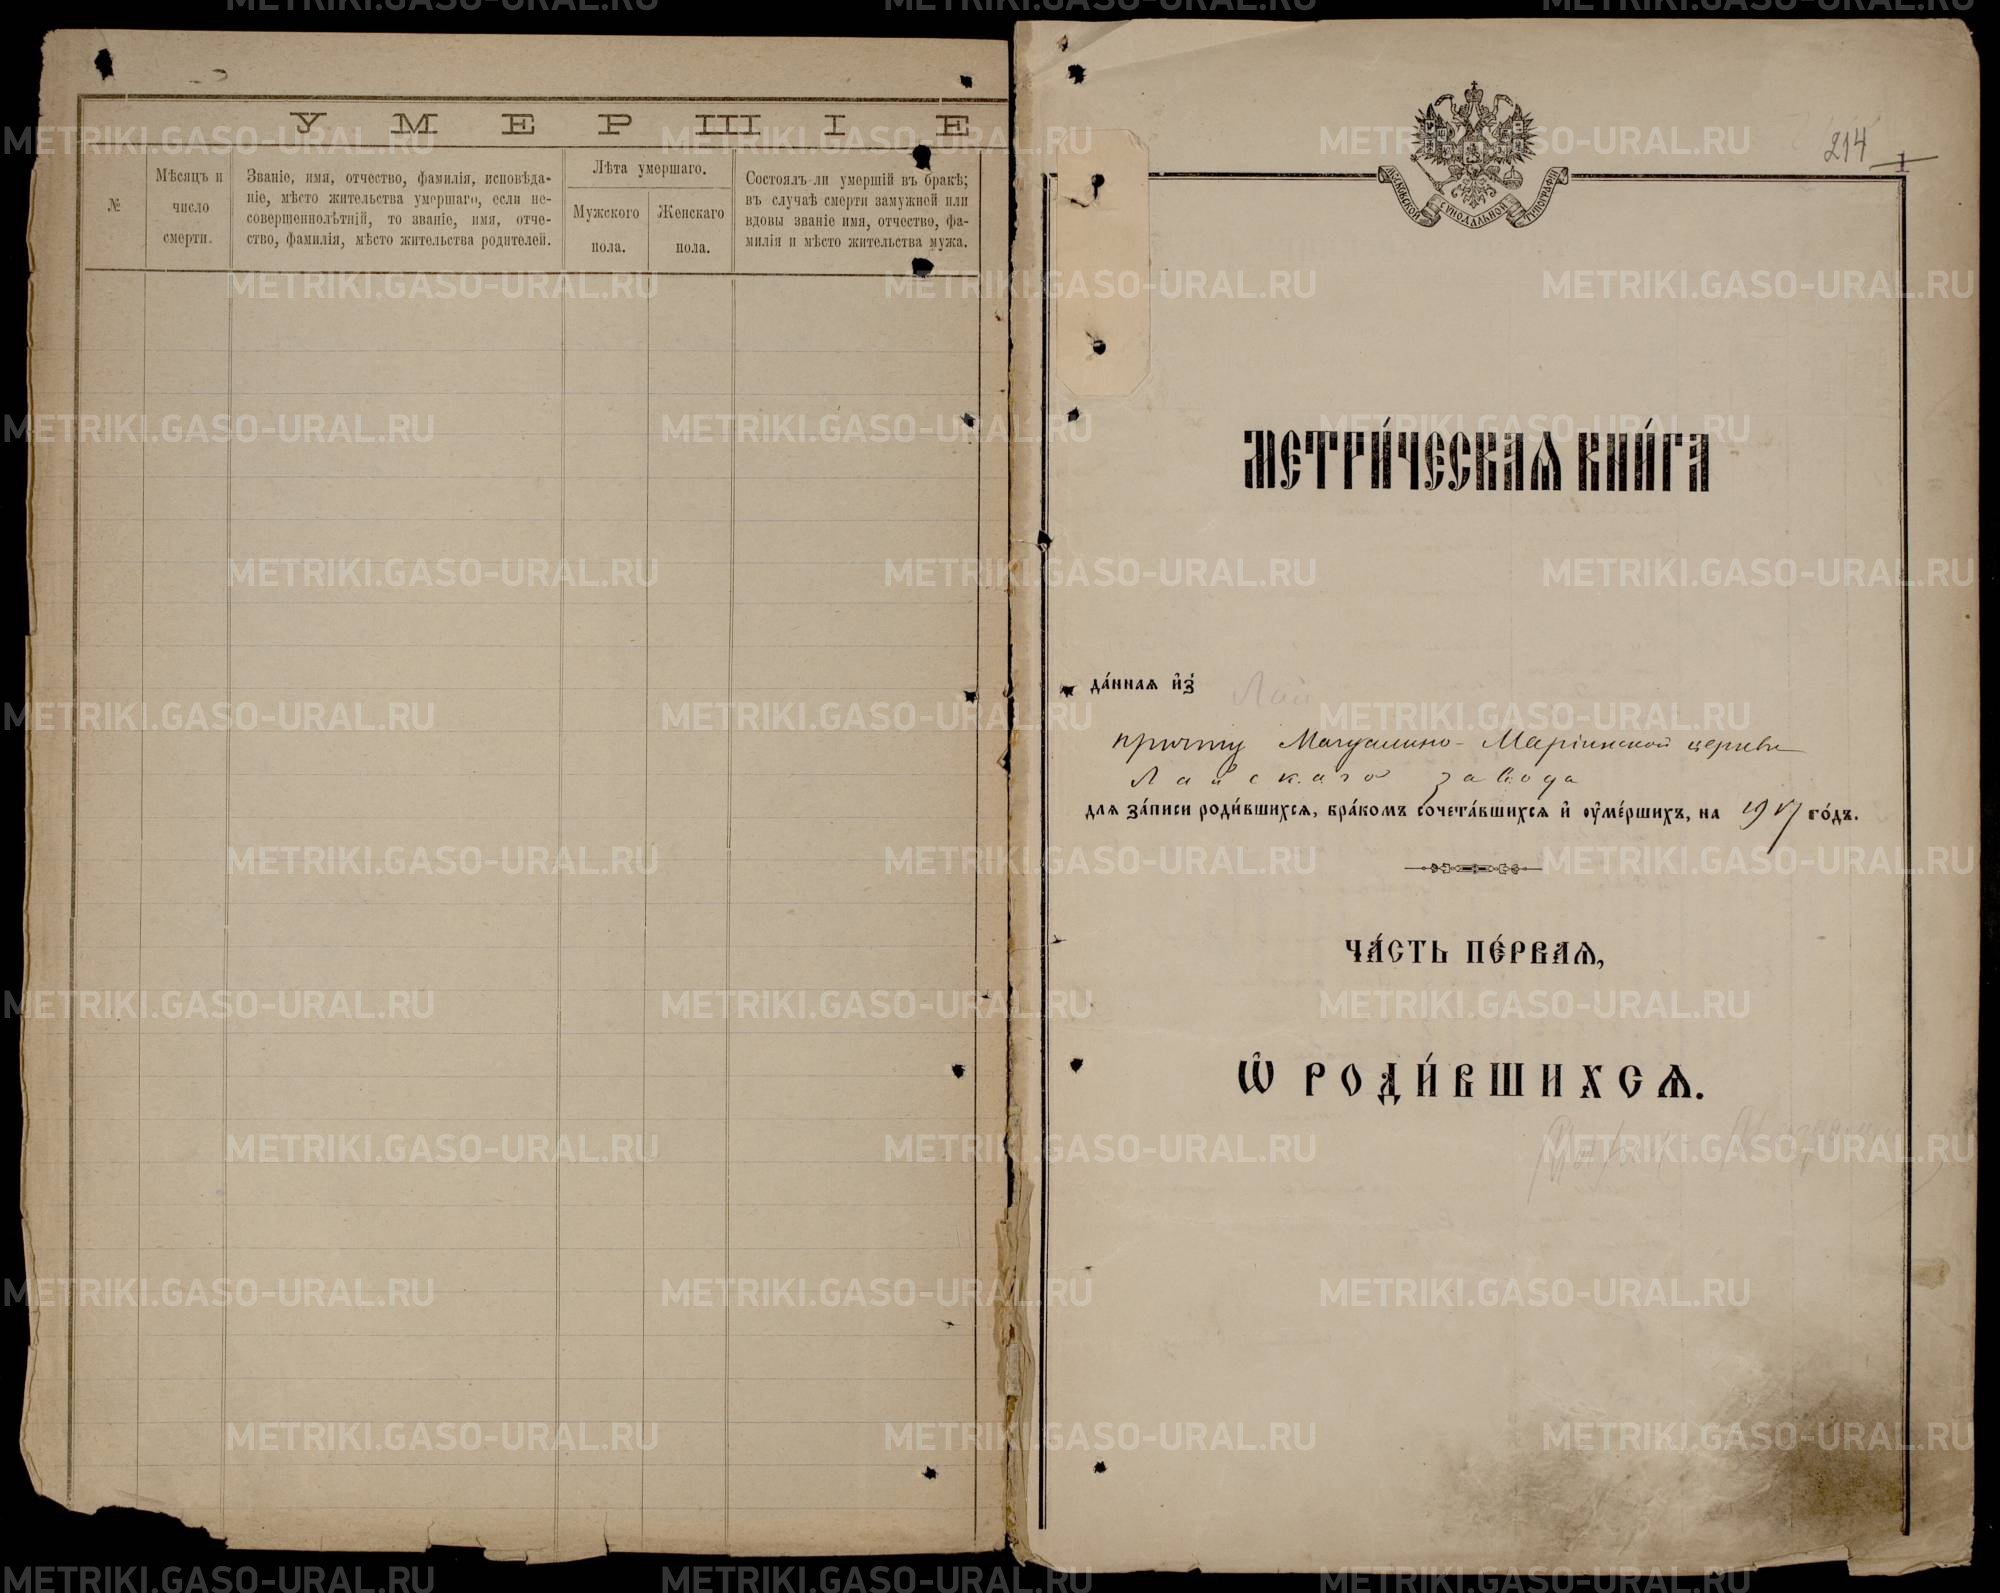 УМЕРШІЕ
№
Мѣсяцъ и
число
смерти.
Званіе, имя, отчество, фамилія, исповѣда-
ніе, мѣсто жительства умершаго, если не-
совершеннолѣтній, то званіе, имя, отче-
ство, фамилія, мѣсто жительства родителей.
Лѣта умершаго.
Мужского
пола.
Женскаго
пола.
Состоялъ-ли умершій въ бракѣ;
въ случаѣ смерти замужней или
вдовы званіе имя, отчество, фа-
милія и мѣсто жительства мужа.
214
1
МОСКОВСКОЙ СѴНОДАЛЬНОЙ ТИПОГРАФІИ
МЕТРИ́ЧЕСКАѦ КНИ́ГА
да́ннаѧ и҆з̾
Лай
причту Магдалино-Маріинской церкви
Лайскаго завода
длѧ за́писи роди́вшихсѧ, бра́комъ сочета́вшихсѧ и҆ ᲂу҆ме́ршихъ, на 1917 го́дъ.
ЧА́СТЬ ПЕ́РВАѦ,
Ѽ РОДИ́ВШИХСѦ.
METRIKI.GASO-URAL.RU